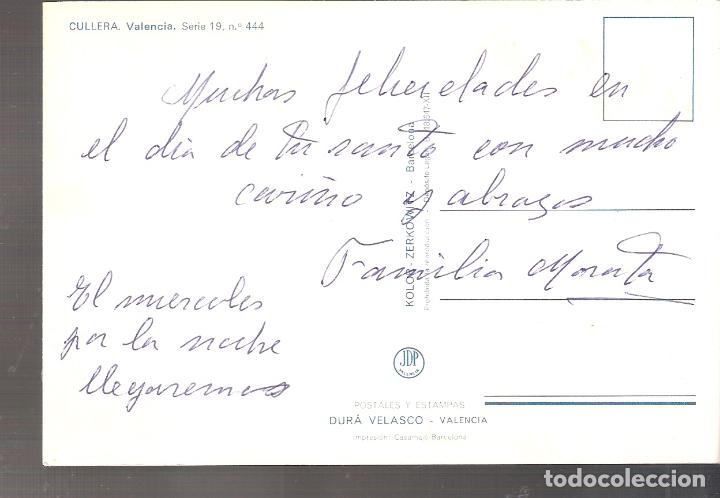 CULLERA. Valencia. Serie 19, n.º 444
Muchas felicidades en
el dia de tu santo con mucho
cariño y abrazos
Familia Morata
El miercoles
por la noche
llegaremos
KOLOR-ZERKOWITZ - Barcelona
Prohibida la reproducción - Depósito Legal
JDP
VALENCIA
POSTALES Y ESTAMPAS
DURÁ VELASCO - VALENCIA
Impresión: Casamajó-Barcelona
todocoleccion.net